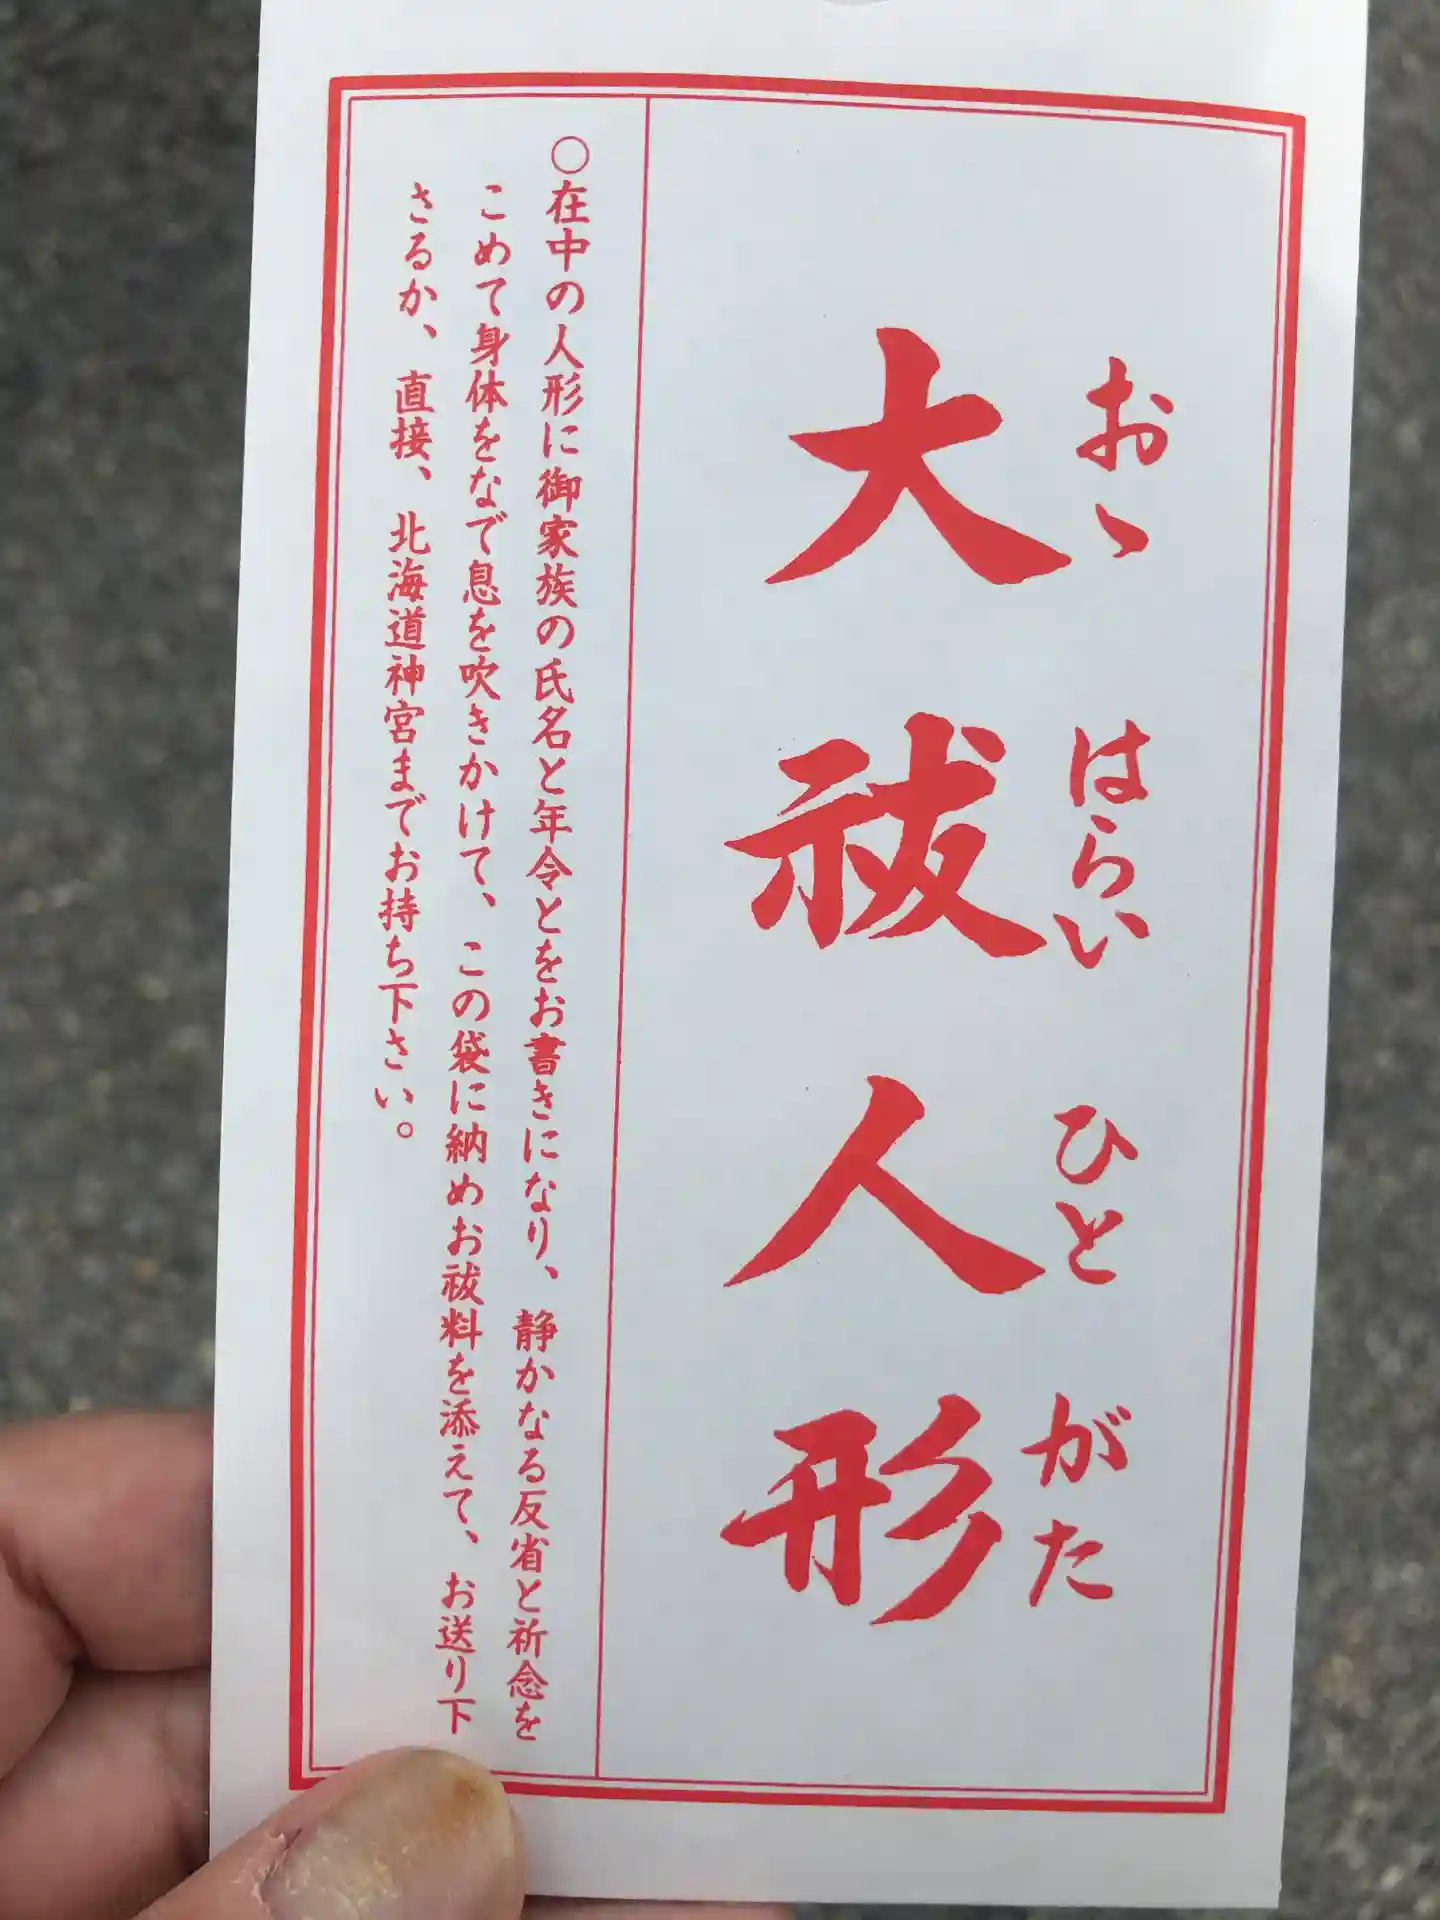 おゝ はらい ひと がた
大祓人形
○在中の人形に御家族の氏名と年令とをお書きになり、静かなる反省と祈念を
こめて身体をなで息を吹きかけて、この袋に納めお祓料を添えて、お送り下
さるか、直接、北海道神宮までお持ち下さい。